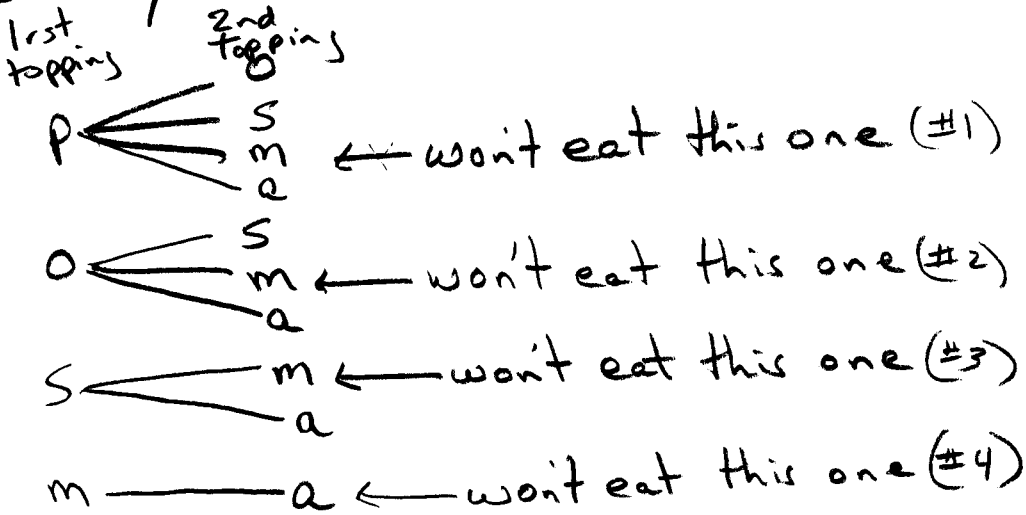 1rst topping 2nd topping
P O
S
m ← won't eat this one (#1)
a
O S
m ← won't eat this one (#2)
a
S m ← won't eat this one (#3)
a
m a ← won't eat this one (#4)